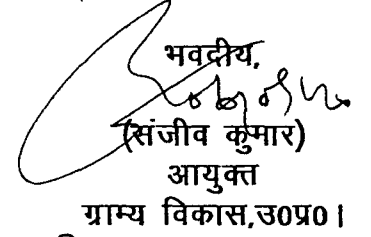 भवदीय,
(संजीव कुमार)
आयुक्त
ग्राम्य विकास,उ0प्र0।